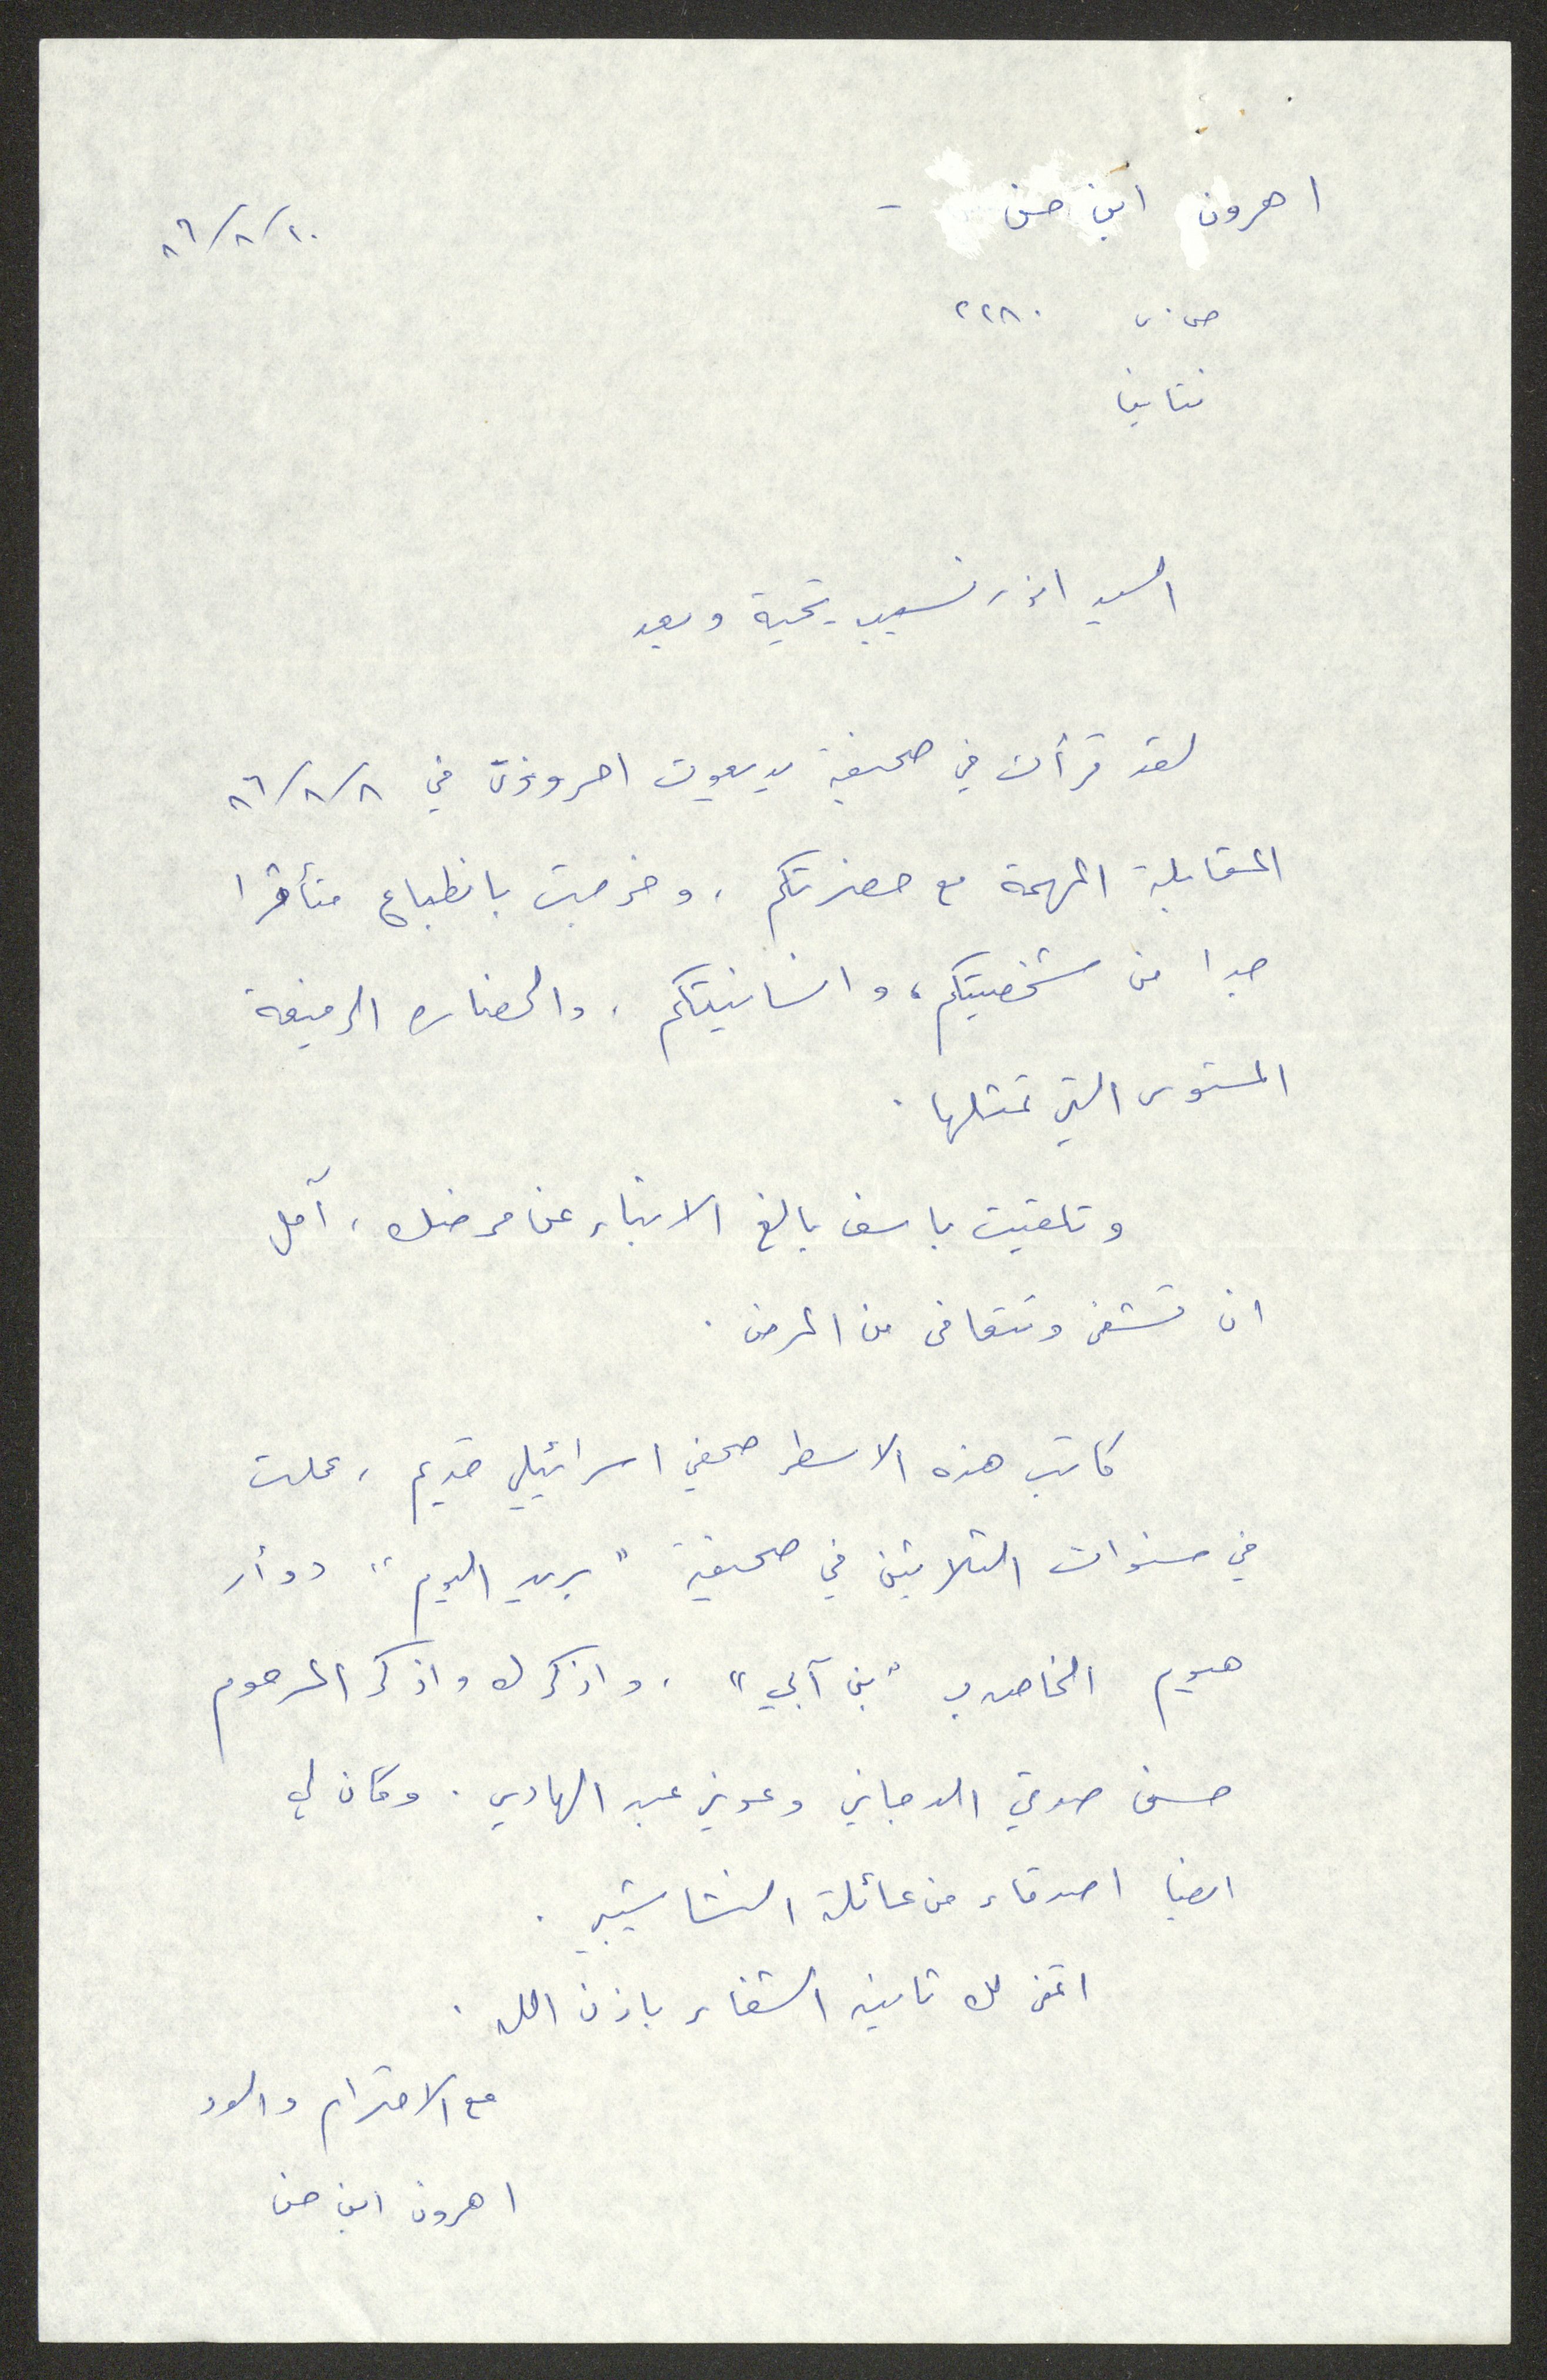 اهرون ابن حن -
١٠/٨/٨٦
ص.ب ٢٢٨٠
نتانيا
السيد انور نسيبه تحية وبعد
لقد قرأت في صحيفة يديعوت احرونوت في ٨/٨/٨٦
المقابلة المهمة مع حضرتكم، وخرجت بانطباع متأثرا
جدا من شخصيتكم، وانسانيتكم، والحضاره الرفيعة
المستوى التي تمثلها.
وتلقيت باسف بالغ الانباء عن مرضك، آمل
ان تشفى وتتعافى من المرض.
كاتب هذه الاسطر صحفي اسرائيلي قديم، عملت
في سنوات الثلاثين في صحيفة "بريد اليوم" دوأر
هيوم الخاص ب "بن آبي"، واذكرك واذكر المرحوم
حسن صدقي الدجاني وعوني عبد الهادي. وكان لي
ايضا اصدقاء من عائلة النشاشيبي.
اتمنى لك ثانية الشفاء باذن الله.
مع الاحترام والود
اهرون ابن حن